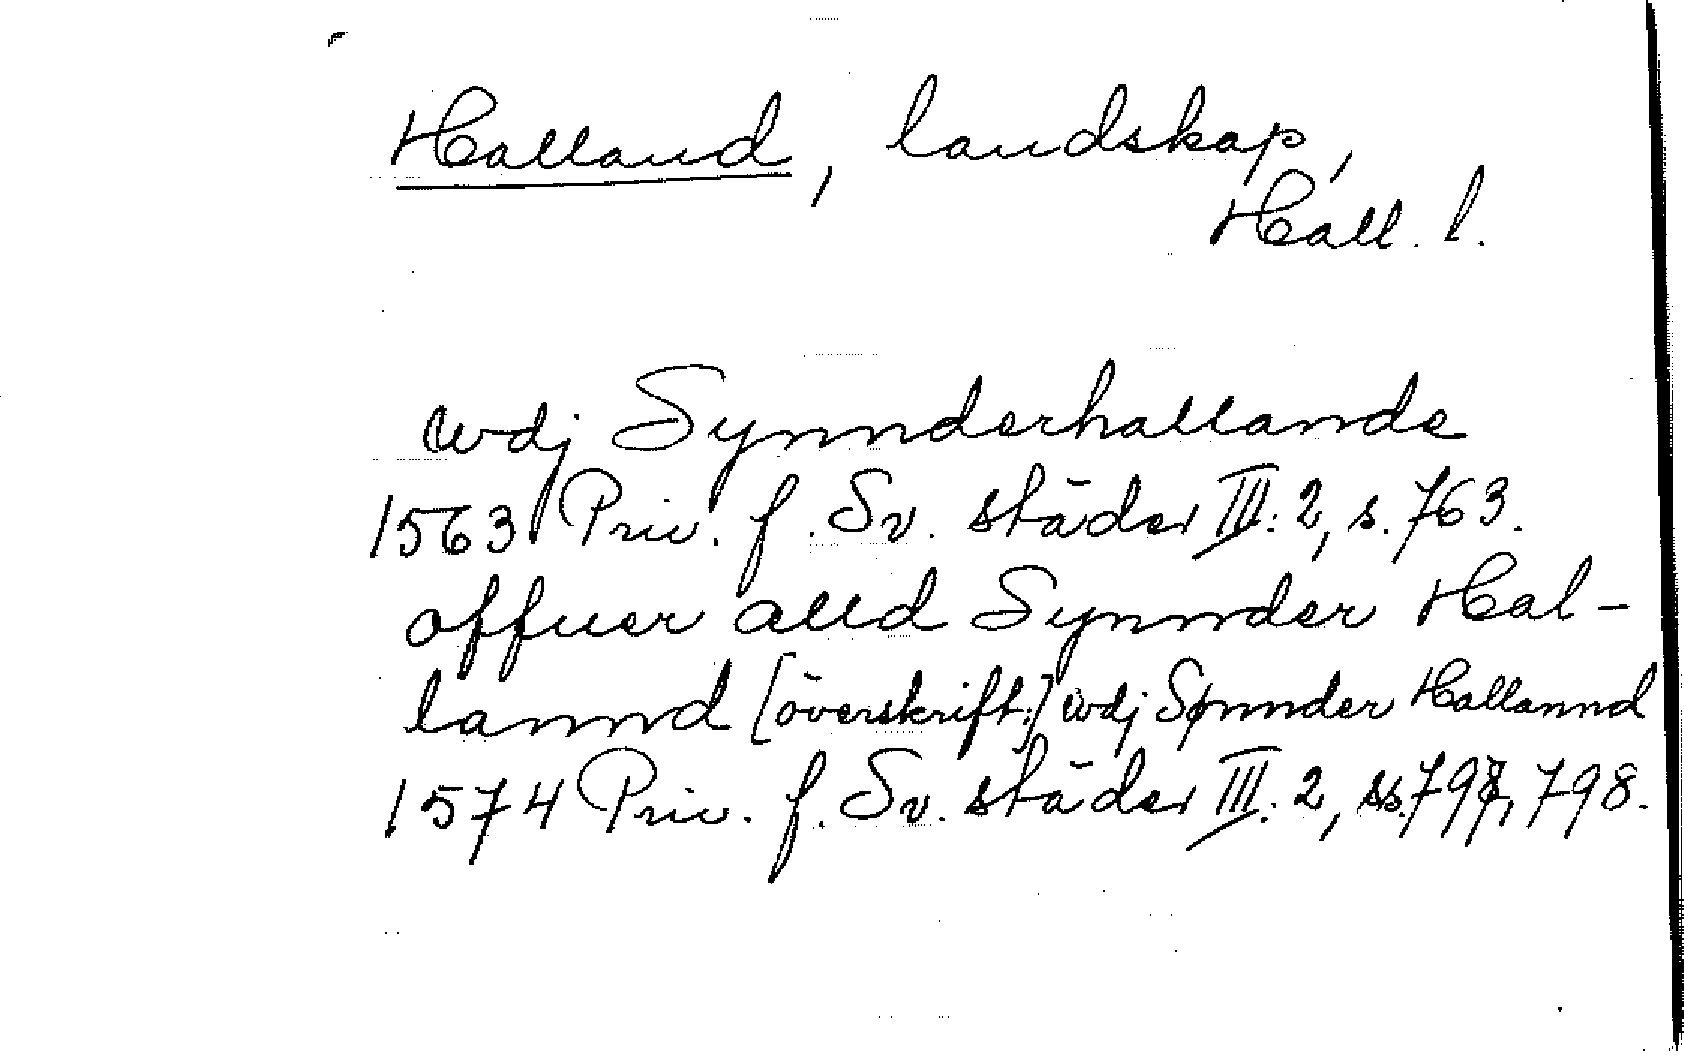 Halland, landskap,
Hall. l.
wdj Synnderhallande
1563 Priv. f. Sv. städer III:2, s. 763.
offuer alld Synnder Hal-
lannd [överskift:] wdj Sønnder Hallannd
1574 Priv. f. Sv. städer III:2, ss. 797, 798.